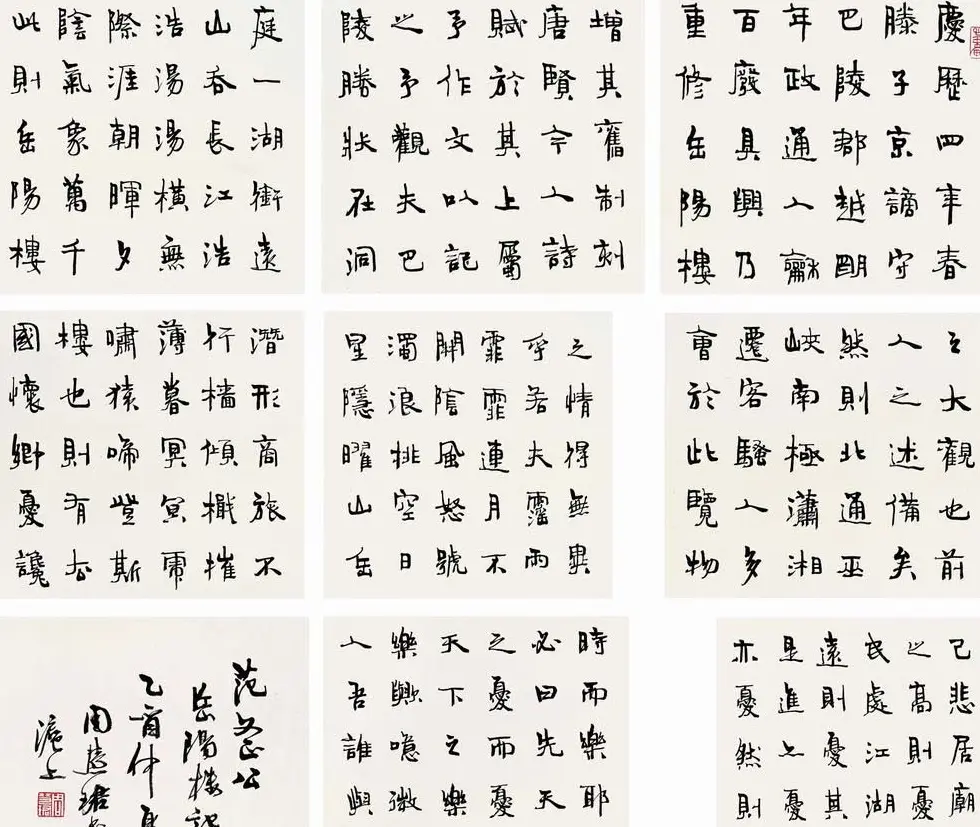 慶歷四年春
滕子京謫守
巴陵郡越明
年政通人龢
百廢具興乃
重修岳陽樓
增其舊制刻
唐賢今人詩
賦於其上屬
予作文以記
之予觀夫巴
陵勝狀在洞
庭一湖銜遠
山吞長江浩
浩湯湯橫無
際涯朝暉夕
陰氣象萬千
此則岳陽樓
之大觀也前
人之述備矣
然則北通巫
峽南極瀟湘
遷客騷人多
會於此覽物
之情得無異
乎若夫霪雨
霏霏連月不
開陰風怒號
濁浪排空日
星隱曜山岳
潛形商旅不
行檣傾檝摧
薄暮冥冥虎
嘯猿啼登斯
樓也則有去
國懷鄉憂讒
己悲居廟
之高則憂
民處江湖
遠則憂其
是進亦憂
亦憂然則
時而樂耶
必曰先天
之憂而憂
天下之樂
樂歟噫微
人吾誰與
范文正公
岳陽樓記
乙酉仲夏
周慧珺
滬上